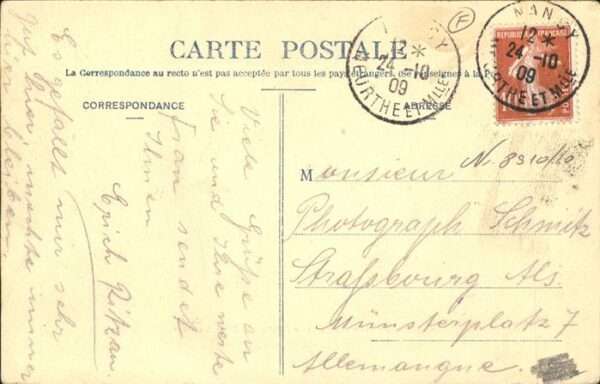 CARTE POSTALE
La Correspondance au recto n'est pas acceptée par tous les pays étrangers. se renseignes à la Po
CORRESPONDANCE
ADRESSE
NANCY
12*
24-10
09
MEURTHE ET MLLE
NANCY
12*
24-10
09
MEURTHE ET MLLE
REPUBLIQUE FRANÇAISE
POSTES
F
N. 8910/10
Monsieur
Photograph Schmitz
Straßbourg Als.
Münsterplatz 7
Allemangne.
Viele Grüße an
Sie und Ihre werte
Frau sendet
Ihnen
Erich
Es gefällt mir sehr
gut hier möchte immer
hier bleiben.